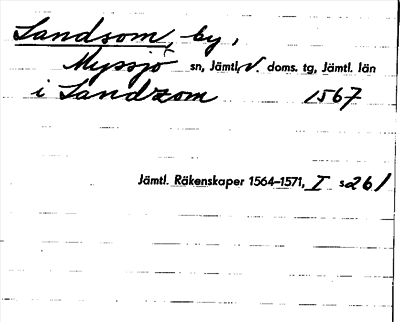 Sandsom, by,
Myssjö sn, Jämtl. V. doms. tg, Jämtl. län
i Sandzom 1567
Jämtl. Räkenskaper 1564–1571, I s 261